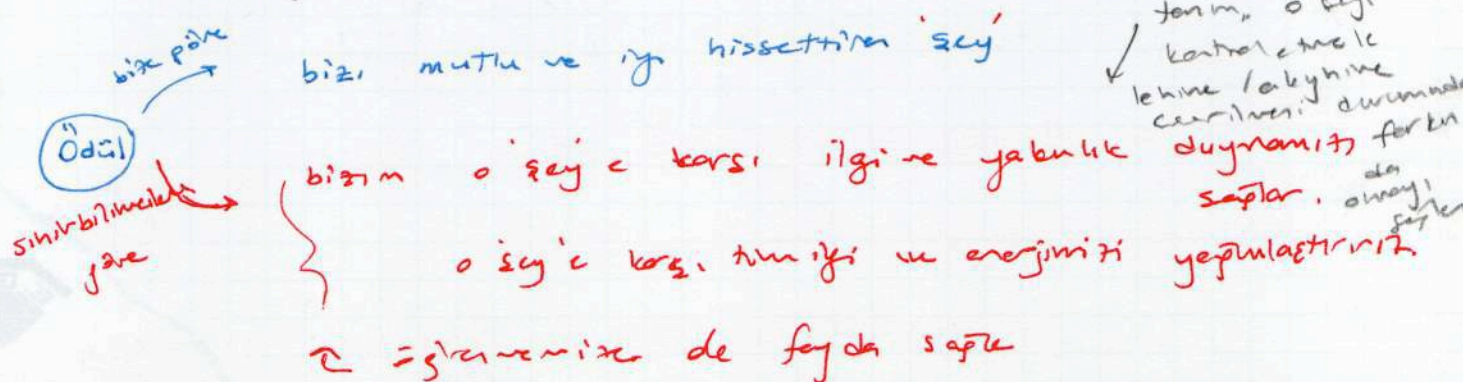 bize göre
bizi mutlu ve iyi hissettiren şey
Ödül
sinirbilimcilere göre
bizim o şey'e karşı ilgi ve yakınlık duymamızı sağlar.
o şey'e karşı tüm ilgi ve enerjimizi yoğunlaştırırız.
öğrenmemize de fayda sağlar
tanım, o şeyi
kontrol etmek
lehine / aleyhine
çevrilmesi durumunda
farkın
da
olmayı
sağlar